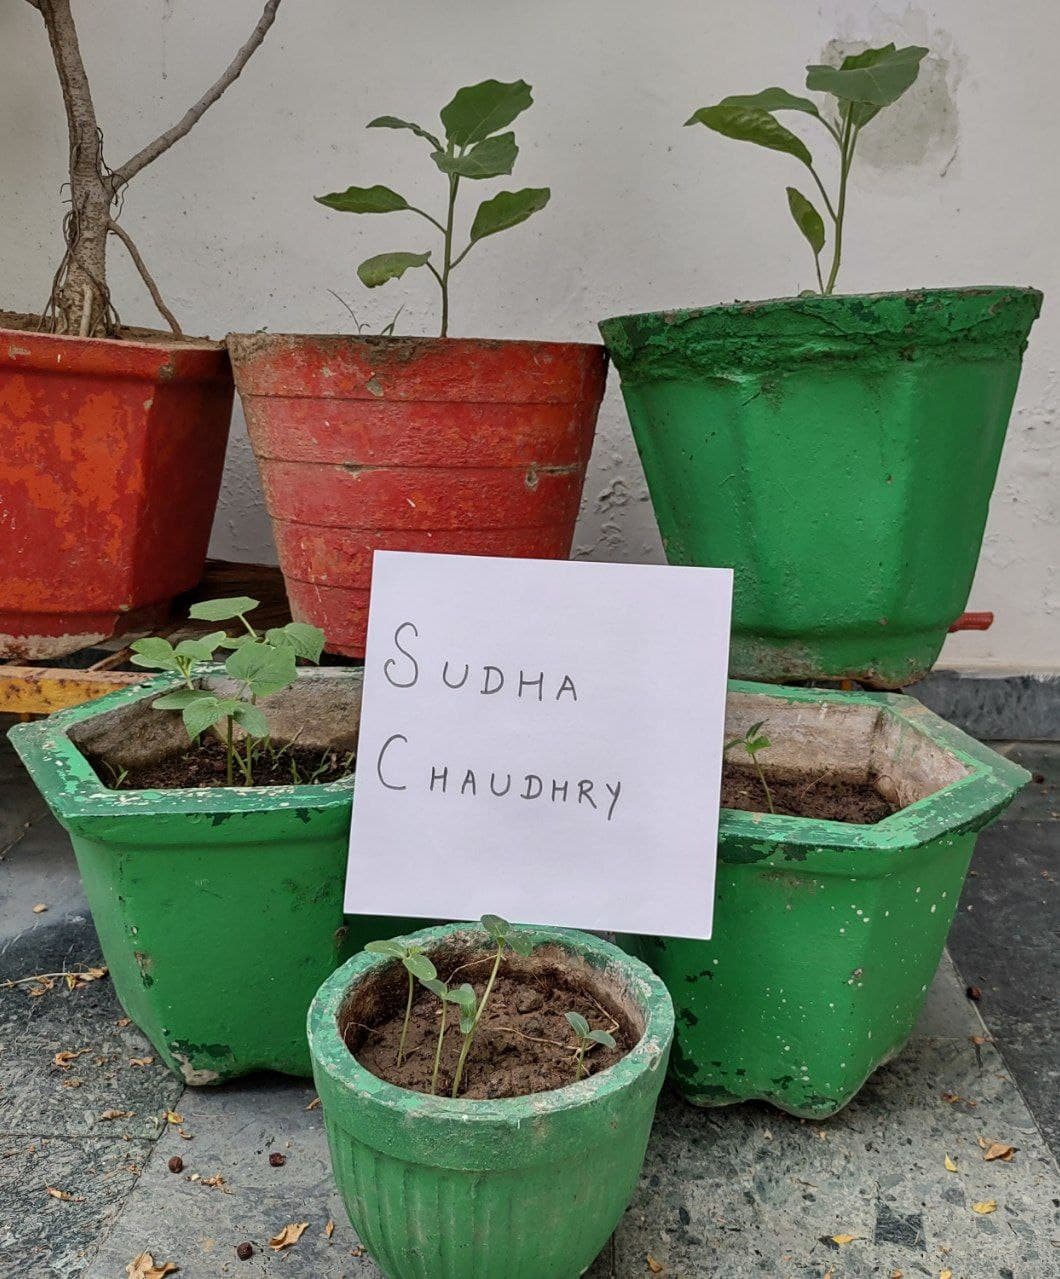 SUDHA
CHAUDHRY